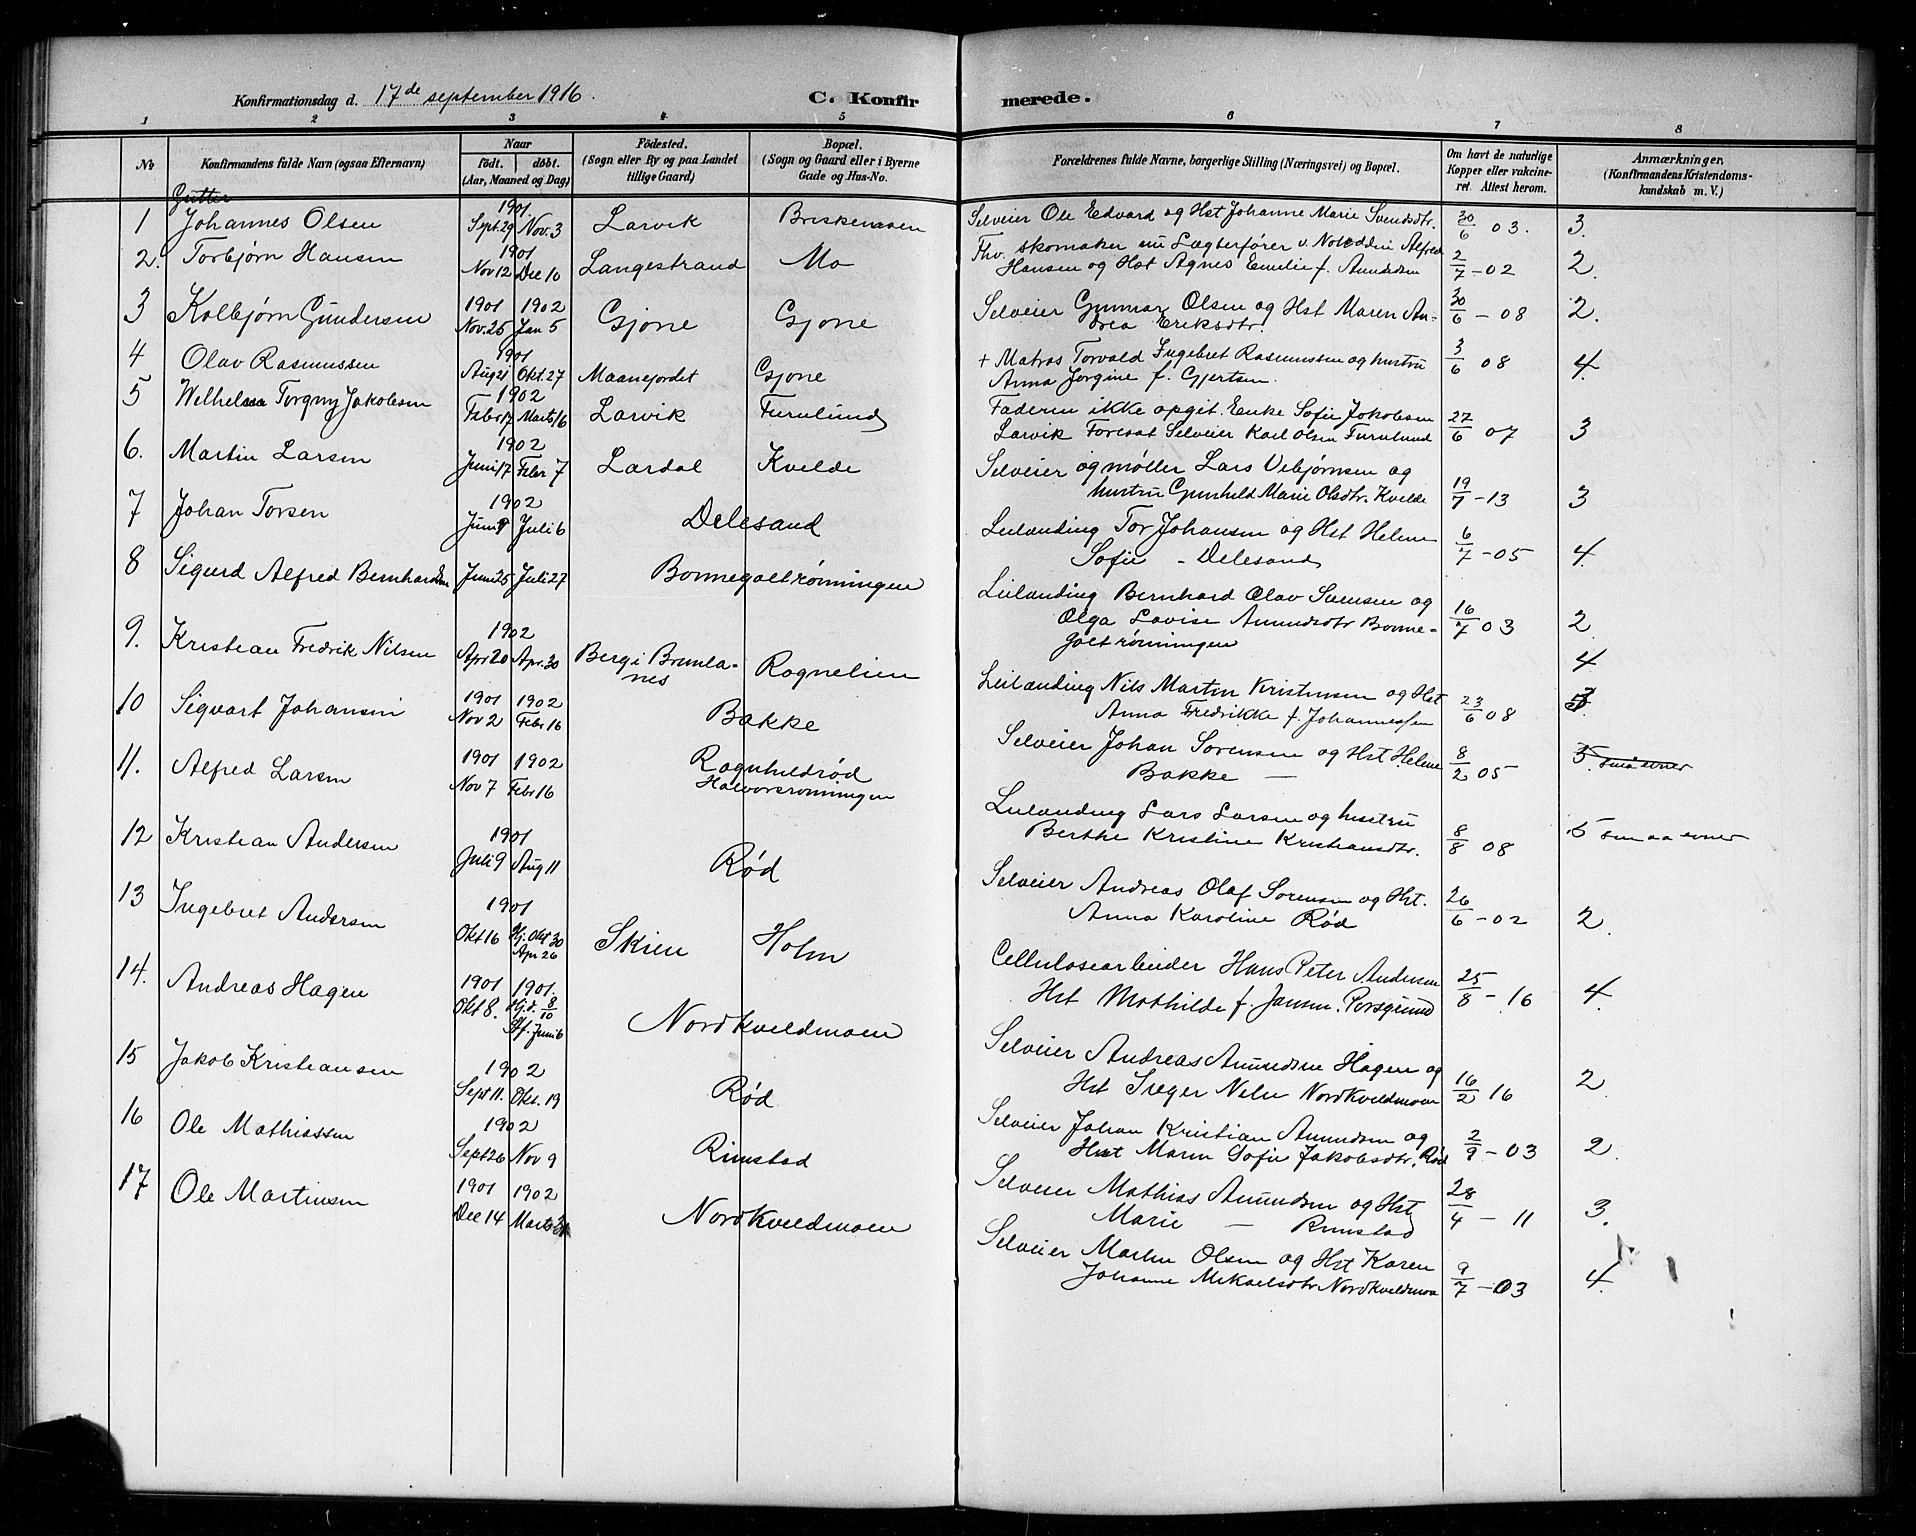 Konfirmationsdag d. 17de september 1916. C. Konfirmerede.
1 2 3 4 5 6 7 8
No Konfirmandens fulde Navn (ogsaa Efternavn) Naar födt. döbt. (Aar, Maaned og Dag) Födested. (Sogn eller By og paa Landet tillige Gaard) Bopæl. (Sogn og Gaard eller i Byerne Gade og Hus-No. Forældrenes fulde Navne, borgerlige Stilling (Næringsvei) og Bopæl. Om havt de naturlige Kopper eller vakcineret. Attest herom. Anmærkninger, (Konfirmandens Kristendomskundskab m. V.)
Gutter
1 Johannes Olsen 1901. Sept. 29 Nov. 3 Larvik Briskemoen Selveier Ole Edvard og Hst Johanne Marie Svendsdtr. 30/6 03. 3.
2. Torbjørn Hansen 1901 Nov 12 Dec 10 Langestrand Mo Fhv. skomaker nu Lægterfører v. Notodden Alfred
Hansen og Hst Agnes Emelie f. Amundsen 2/7 - 02 2.
3 Kolbjørn Gundersen 1901 1902 Nov. 25 Jan 5 Gjone Gjone Selveier Gunnar Olsen og Hst Maren An-
drea Eriksdtr. 30/6 - 08 2.
4 Olav Rasmussen 1901 Aug 21 Okt. 27 Maanejordet Gjone + Matros Torvald Ingebret Rasmussen og hustru
Anna Jorgine f. Gjertsen. 3/6 08 4.
5 Welhelm Torgny Jakobsen 1902 Febr 17 Marts 16 Larvik Furulund Faderen ikke opgit. Enke Sofie Jakobsen
Larvik Foresat Selveier Karl Olsen Furulund 27/6 07 3
6. Martin Larsen 1902 Juni 17 Febr 7 Lardal Kvelde Selveier og møller Lars Vebjørnsen og
hustru Gunhild Marie Olsdtr. Kvelde 19/7 - 13 3
7 Johan Torsen 1902 Juni Juli 6 Delesand Leilænding Tor Johansen og Hst Helene
Sofie - Delesand 6/7 - 05 4.
8 Sigurd Alfred Bernhardsen Juni 25 Juli 27 Bonnegoltrønningen Leilænding Bernhard Olav Svensen og
Olga Lovise Amundsdtr Bonne-
goltrønningen 16/7 03 2
9. Kristian Fredrik Nilsen 1902 Apr 20 Apr. 30 Berg i Brunla-
nes Rognelien Leilænding Nils Martin Kristensen og Hst
Anna Fredrikke f. Johannessen 23/6 08 4
10 Sigvart Johansen 1901 1902 Nov 2 Febr 16 Bakke Selveier Johan Sorensen og Hst Helene
Bakke - 8/2 05 5 smaa evner
11. Alfred Larsen 1901 1902 Nov 7 Febr 16 Ragnhildrød
Halvorsrønningen Leilænding Lars Larsen og hustru
Berthe Kristine Kristiansdtr. 8/8 08 5 smaa evner
12 Kristian Andersen 1901 Juli 9 Aug 11 Rød Selveier Andreas Olaf Sorensen og Hst.
Anna Karoline Rød 26/6 - 02 2.
13 Ingebret Andersen 1901 Okt 16 Hj. Okt 30
Apr 26 Skien Holm Cellulosearbeider Hans Peter Andersen
Hst Mathilde f. Jansen. Porsgrund 25/8 - 16 4.
14. Andreas Hagen 1901 1901. Okt 8. Hj.d. 8/10
Stf. Juni 6 Nordkveldmoen Selveier Andreas Amundsen Hagen og
Hst Inger Nelie Nordkveldmoen 16/2 16 2.
15 Jakob Kristiansen 1902 Sept 11. Okt. 19 Rød Selveier Johan Kristian Amundsen og
Hst Maren Sofie Jakobsdtr. Rød 2/9 - 03 2.
16 Ole Mathiassen 1902 Sept 26 Nov 9 Rimstad Selveier Mathias Amundsen og Hst
Marie - Rimstad 28/4 - 11 3.
17 Ole Martinsen 1901 1902 Dec 14 Marts 31 Nordkveldmoen Selveier Martin Olsen og Hst Karen
Johanne Mikaelsdtr Nordkveldmoa 9/7 - 03 4.